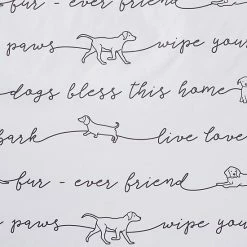 fur - ever friend
paws wipe your
dogs bless this home
bark live love
fur - ever friend
paws wipe your